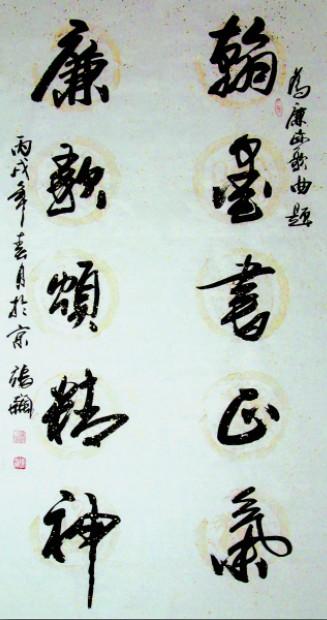 為廉政歌曲題
翰墨書正氣
廉歌頌精神
丙戌年春月於京 張